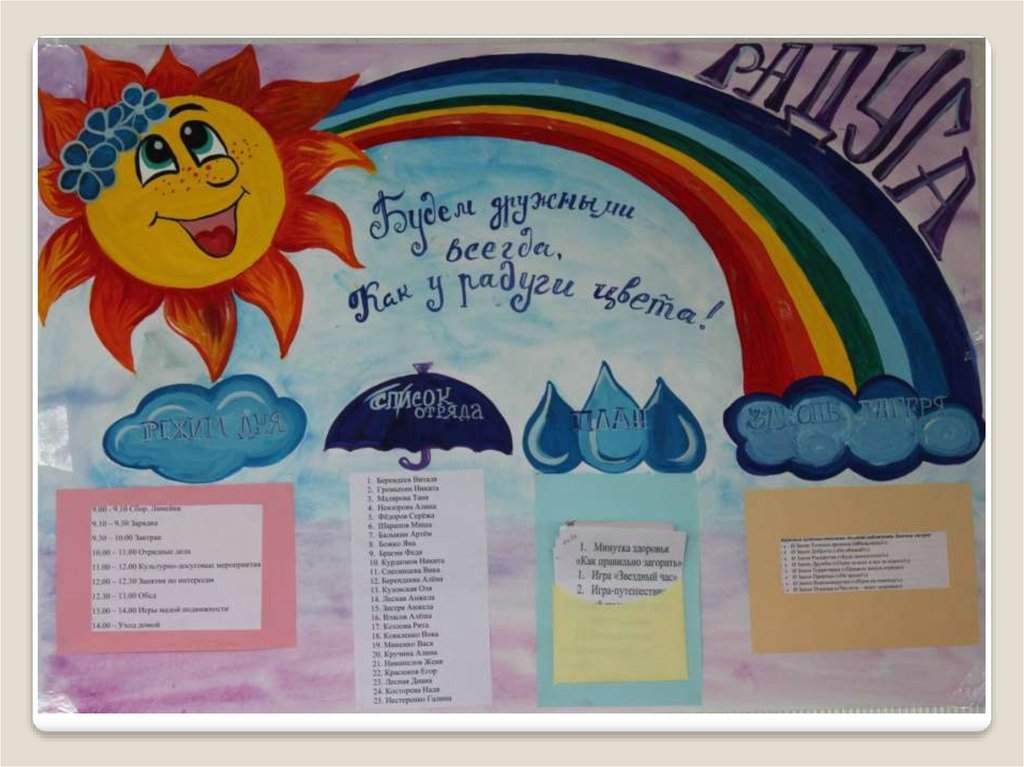 РАДУГА
Будем дружными
всегда,
Как у радуги цвета!
РЕЖИМ ДНЯ
9.00 – 9.10 Сбор. Линейка
9.10 – 9.30 Зарядка
9.30 – 10.00 Завтрак
10.00 – 11.00 Отрядные дела
11.00 – 12.00 Культурно-досуговые мероприятия
12.00 – 12.30 Занятия по интересам
12.30 – 13.00 Обед
13.00 – 14.00 Игры малой подвижности
14.00 – Уход домой
СПИСОК
ОТРЯДА
1. Берендеев Виталя
2. Громыхин Никита
3. Малярова Таня
4. Невзорова Алина
5. Фёдоров Серёжа
6. Шарапов Миша
7. Балыкин Артём
8. Божко Яна
9. Брагин Федя
10. Курдюмов Никита
11. Спесивцева Вика
12. Берендяева Алёна
13. Кузовская Оля
14. Лесная Анжела
15. Заегра Анжела
16. Власов Алёша
17. Козлова Рита
18. Коваленко Вова
19. Миненко Вася
20. Кручина Алина
21. Ниминелов Женя
22. Красюков Егор
23. Лесная Диана
24. Косторева Надя
25. Нестеренко Галина
ПЛАН
1. Минутка здоровья
«Как правильно загорать»
1. Игра «Звездный час»
2. Игра-путешествие
ЗАКОНЫ ЛАГЕРЯ